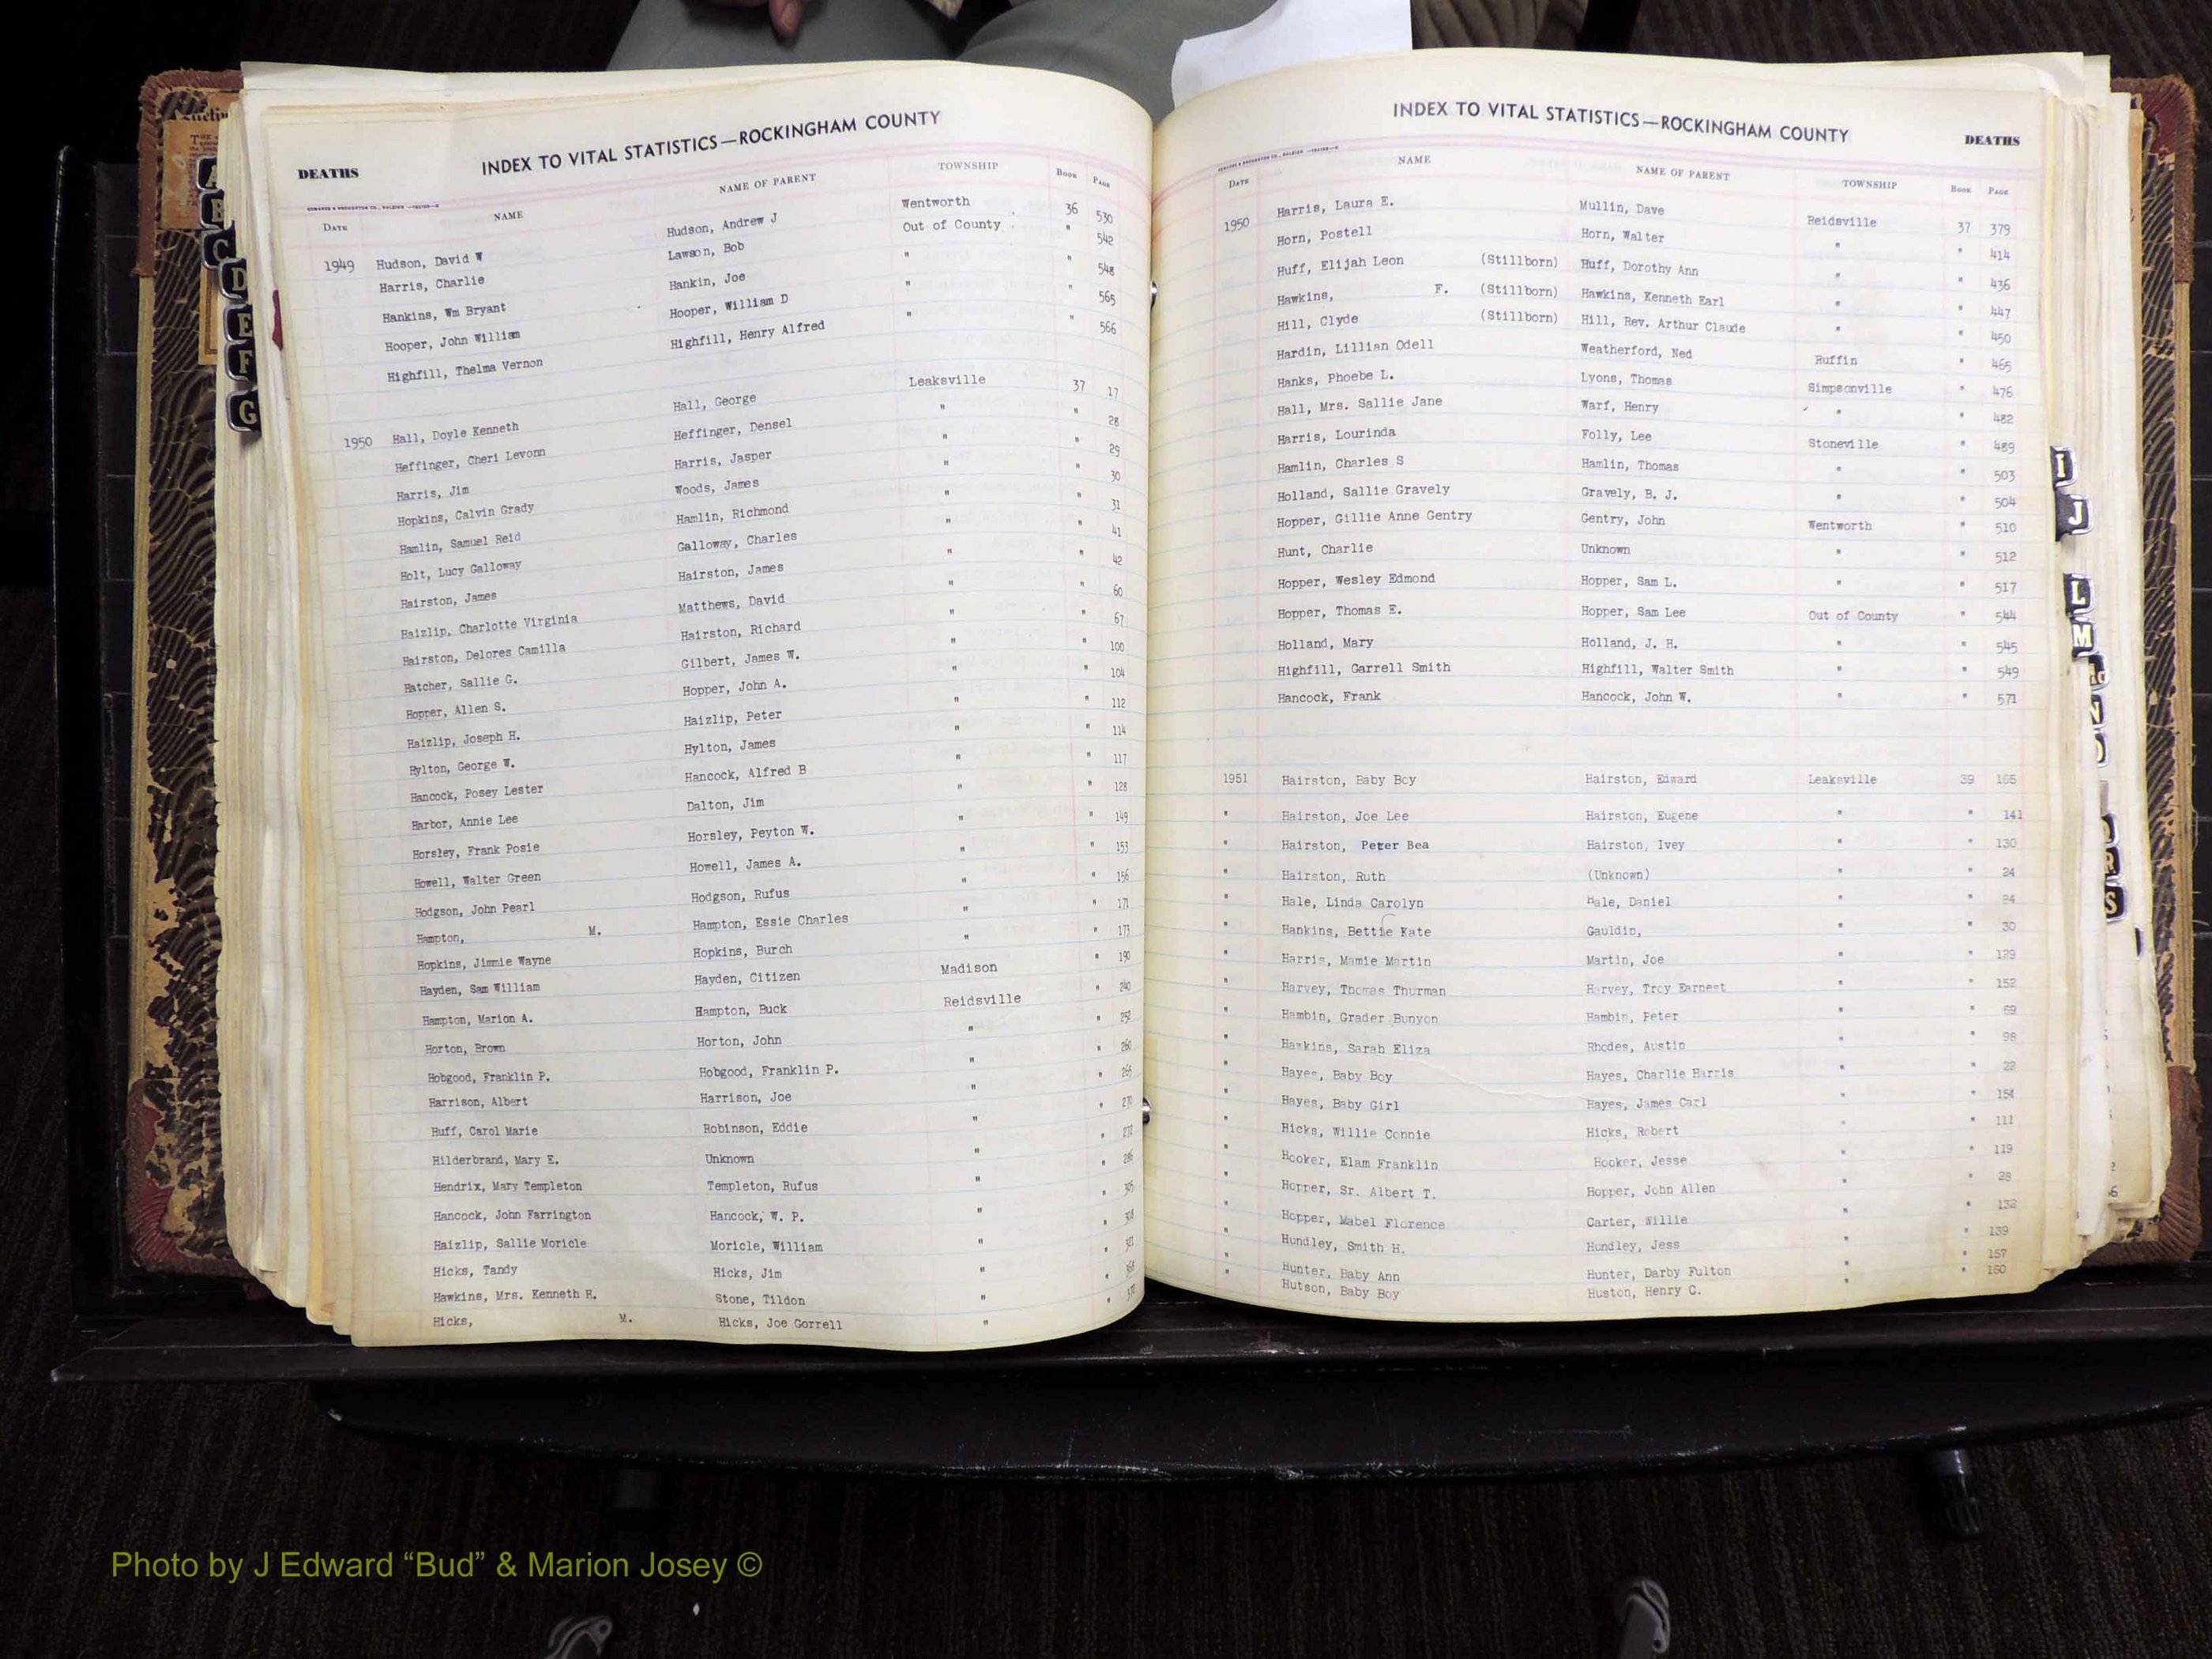 INDEX TO VITAL STATISTICS—ROCKINGHAM COUNTY
DEATHS
DATE NAME NAME OF PARENT TOWNSHIP BOOK PAGE
1949 Hudson, David W Hudson, Andrew J Wentworth 36 530
Harris, Charlie Lawson, Bob Out of County " 542
Hankins, Wm Bryant Hankin, Joe " " 548
Hooper, John William Hooper, William D " " 565
Highfill, Thelma Vernon Highfill, Henry Alfred " " 566
1950 Hall, Doyle Kenneth Hall, George Leaksville 37 17
Heffinger, Cheri Levonn Heffinger, Densel " " 28
Harris, Jim Harris, Jasper " " 29
Hopkins, Calvin Grady Woods, James " " 30
Hamlin, Samuel Reid Hamlin, Richmond " " 31
Holt, Lucy Galloway Galloway, Charles " " 41
Hairston, James Hairston, James " " 42
Haizlip, Charlotte Virginia Matthews, David " " 60
Hairston, Delores Camilla Hairston, Richard " " 67
Hatcher, Sallie G. Gilbert, James W. " " 100
Hopper, Allen S. Hopper, John A. " " 104
Haizlip, Joseph H. Haizlip, Peter " " 112
Hylton, George W. Hylton, James " " 114
Hancock, Posey Lester Hancock, Alfred B " " 117
Harbor, Annie Lee Dalton, Jim " " 128
Horsley, Frank Posie Horsley, Peyton W. " " 149
Howell, Walter Green Howell, James A. " " 153
Hodgson, John Pearl Hodgson, Rufus " " 156
Hampton, M. Hampton, Essie Charles " " 171
Hopkins, Jimmie Wayne Hopkins, Burch " " 173
Hayden, Sam William Hayden, Citizen Madison " 190
Hampton, Marion A. Hampton, Buck Reidsville " 240
Horton, Brown Horton, John " " 252
Hobgood, Franklin P. Hobgood, Franklin P. " " 260
Harrison, Albert Harrison, Joe " " 265
Huff, Carol Marie Robinson, Eddie " " 270
Hilderbrand, Mary E. Unknown " " 272
Hendrix, Mary Templeton Templeton, Rufus " " 286
Hancock, John Farrington Hancock, W. P. " "
Haizlip, Sallie Moricle Moricle, William " "
Hicks, Tandy Hicks, Jim " "
Hawkins, Mrs. Kenneth H. Stone, Tildon " "
Hicks, M. Hicks, Joe Gorrell " "
INDEX TO VITAL STATISTICS—ROCKINGHAM COUNTY
DEATHS
DATE NAME NAME OF PARENT TOWNSHIP BOOK PAGE
1950 Harris, Laura E. Mullin, Dave Reidsville 37 379
Horn, Postell Horn, Walter " " 414
Huff, Elijah Leon (Stillborn) Huff, Dorothy Ann " " 436
Hawkins, F. (Stillborn) Hawkins, Kenneth Earl " " 447
Hill, Clyde (Stillborn) Hill, Rev. Arthur Claude " " 450
Hardin, Lillian Odell Weatherford, Ned Ruffin " 465
Hanks, Phoebe L. Lyons, Thomas Simpsonville " 476
Hall, Mrs. Sallie Jane Warf, Henry " " 482
Harris, Lourinda Folly, Lee Stoneville " 489
Hamlin, Charles S Hamlin, Thomas " " 503
Holland, Sallie Gravely Gravely, B. J. " " 504
Hopper, Gillie Anne Gentry Gentry, John Wentworth " 510
Hunt, Charlie Unknown " " 512
Hopper, Wesley Edmond Hopper, Sam L. " " 517
Hopper, Thomas E. Hopper, Sam Lee Out of County " 544
Holland, Mary Holland, J. H. " " 545
Highfill, Garrell Smith Highfill, Walter Smith " " 549
Hancock, Frank Hancock, John W. " " 571
1951 Hairston, Baby Boy Hairston, Edward Leaksville 39 165
" Hairston, Joe Lee Hairston, Eugene " " 141
" Hairston, Peter Bea Hairston, Ivey " " 130
" Hairston, Ruth (Unknown) " " 24
" Hale, Linda Carolyn Hale, Daniel " "
" Hankins, Bettie Kate Gauldin, " " 30
" Harris, Mamie Martin Martin, Joe " " 129
" Harvey, Thomas Thurman Harvey, Troy Earnest " " 152
" Hambin, Grader Bunyon Hambin, Peter " " 69
" Hawkins, Sarah Eliza Rhodes, Austin " " 98
" Hayes, Baby Boy Hayes, Charlie Harris " " 22
" Hayes, Baby Girl Hayes, James Carl " " 154
" Hicks, Willie Connie Hicks, Robert " " 111
" Hooker, Elam Franklin Hooker, Jesse " " 119
" Hopper, Sr. Albert T. Hopper, John Allen " " 28
" Hopper, Mabel Florence Carter, Willie " " 132
" Hundley, Smith H. Hundley, Jess " " 139
" Hunter, Baby Ann Hunter, Darby Fulton " " 157
" Hutson, Baby Boy Huston, Henry C. " " 160
A
B
C
D
E
F
G
I
J
L
M
N
O
R
S
Photo by J Edward “Bud” & Marion Josey ©